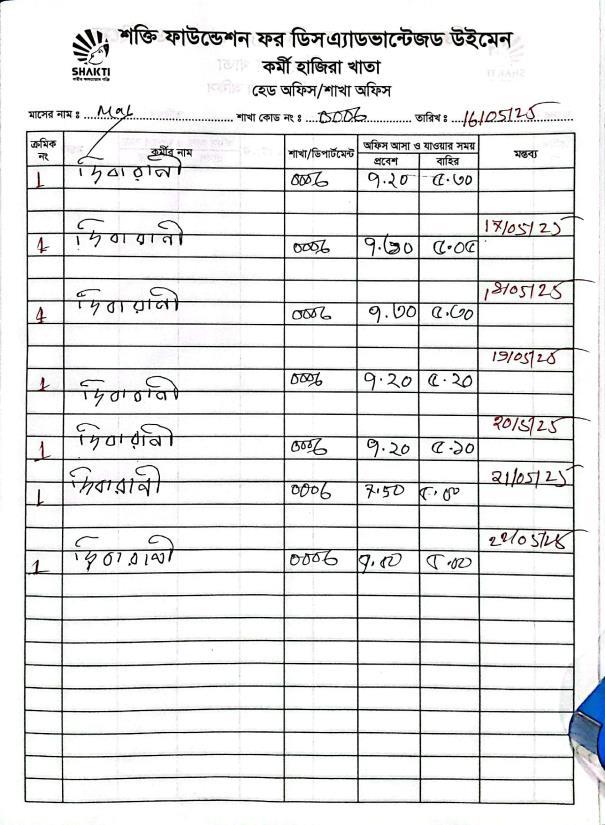 শক্তি ফাউন্ডেশন ফর ডিসএ্যাডভান্টেজড উইমেন
SHAKTI
কর্মী হাজিরা খাতা
হেড অফিস/শাখা অফিস
মাসের নাম ঃ May শাখা কোড নং ঃ 0006 তারিখ ঃ 16/05/25
ক্রমিক নং কর্মীর নাম শাখা/ডিপার্টমেন্ট অফিস আসা ও যাওয়ার সময় মন্তব্য
প্রবেশ বাহির
1 দিবারানী 0006 ৭.২০ ৫.৩০
17/05/25
1 দিবারানী 0006 ৭.৩০ ৫.০৫
18/05/25
1 দিবারানী 0006 ৭.৩০ ৫.৩০
19/05/25
1 দিবারানী 0006 ৭.২০ ৫.২০
20/5/25
1 দিবারানী 0006 ৭.২০ ৫.১০
21/05/25
1 দিবারানী 0006 7.50
22/05/25
1 দিবারানী 0006